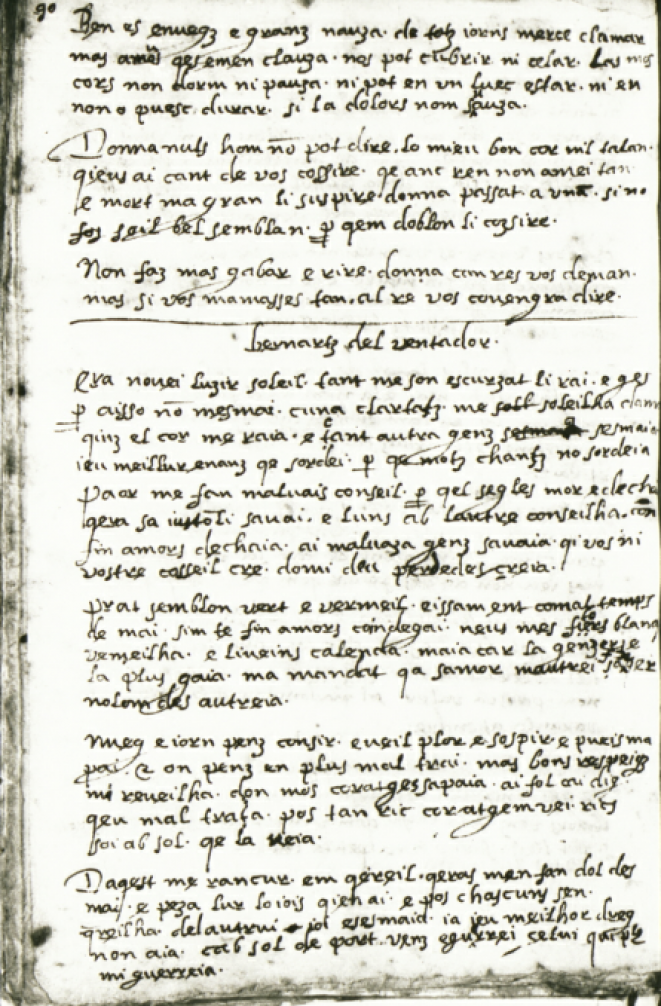 90
Ben es envegz e granz nauza. de totz iorns merce clamar
mas amors qes emen clauza. nos pot cubrir ni celar. Las mos
cors non dorm ni pausa. ni pot en un luec estar. ni eu
non o puesc durar. si la dolors nom pauza.
Donna nuls hom nō pot dire. lo mieu bon cor nil talan.
qieus ai cant de vos cossire. qe anc ren non amei tan
e mort ma gran li suspire. donna passat a un. si no
fos seil bel semblan. p qem doblon li cozsire.
Non faz mas gabar e rire. donna can res vos deman.
mas si vos mamasses tan. al re vos covengra dire.
bernartz del ventador.
Era novei luzir soleil. tant me son escurzat li rai. e ges
p aisso nō mesmai. cuna clartatz me soleilha damor
qinz el cor me raia. e cant autra genz sesmaia
ieu meillur enanz qe sordei. p qe motz chantz no sordeia
Paor me fan malvais conseil. p qel segles mor e decha
qera sa iustoli savai. e luns ab lautre conseilha. con
fin amors dechaia. ai malvaza genz savaia. qi vos ni
vostre cosseil cre. domi deu perdedescreia.
Prat semblon vert e vermeil. eissament comal temps
de mai. sim te fin amors condegai. neus mes flors blanq
vemeilha. e liveins calenda. maia car la genzers e
la plus gaia. ma mandat qa samor mautrei
nolom des autreia.
Nueg e iorn penz consir. e veil plor e sospir. e pueis ma
pai. & on penz en plus mal trai. mas bons respeigz
mi reveilha. don mos coratges sapaia. ai fol cai dig
qeu mal traga. pos tan ric coratgem vei rics
soi ab sol. qe la veia.
Daqest me rancur. em qereil. qeras men fan dol des
mai. e peza lur lo iois qieu ai. e pos chascuns sen.
qreilha. delautrui ioi e sesmaia. ia ieu meilhor dreg
non aia. cab sol de port. venz e gurrei celui qi
mi guerreia.